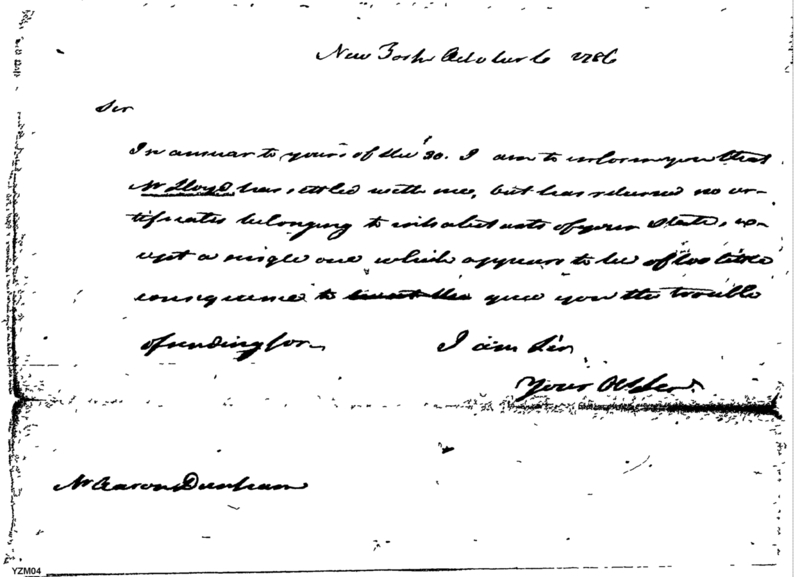 New York October 6 1786
Sir
In answar to yours of the 30. I am to inform you that
Mr Lloyd has settled with me, but has returned no cer-
tificates belonging to inhabitants of your State, ex-
cept a single one which appears to be of too little
consequence to give you the trouble
of sending for.
I am Sir
Your Ob Ser.
Mr Aaron Dunham
YZM04